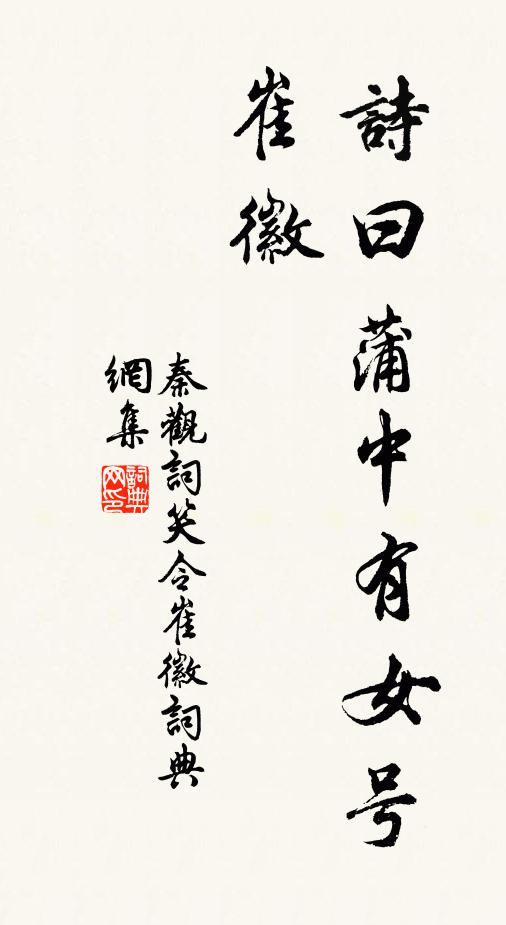 詩曰蒲中有女号
崔徽
秦觀詞笑令崔徽詞典
網集
詞典网印